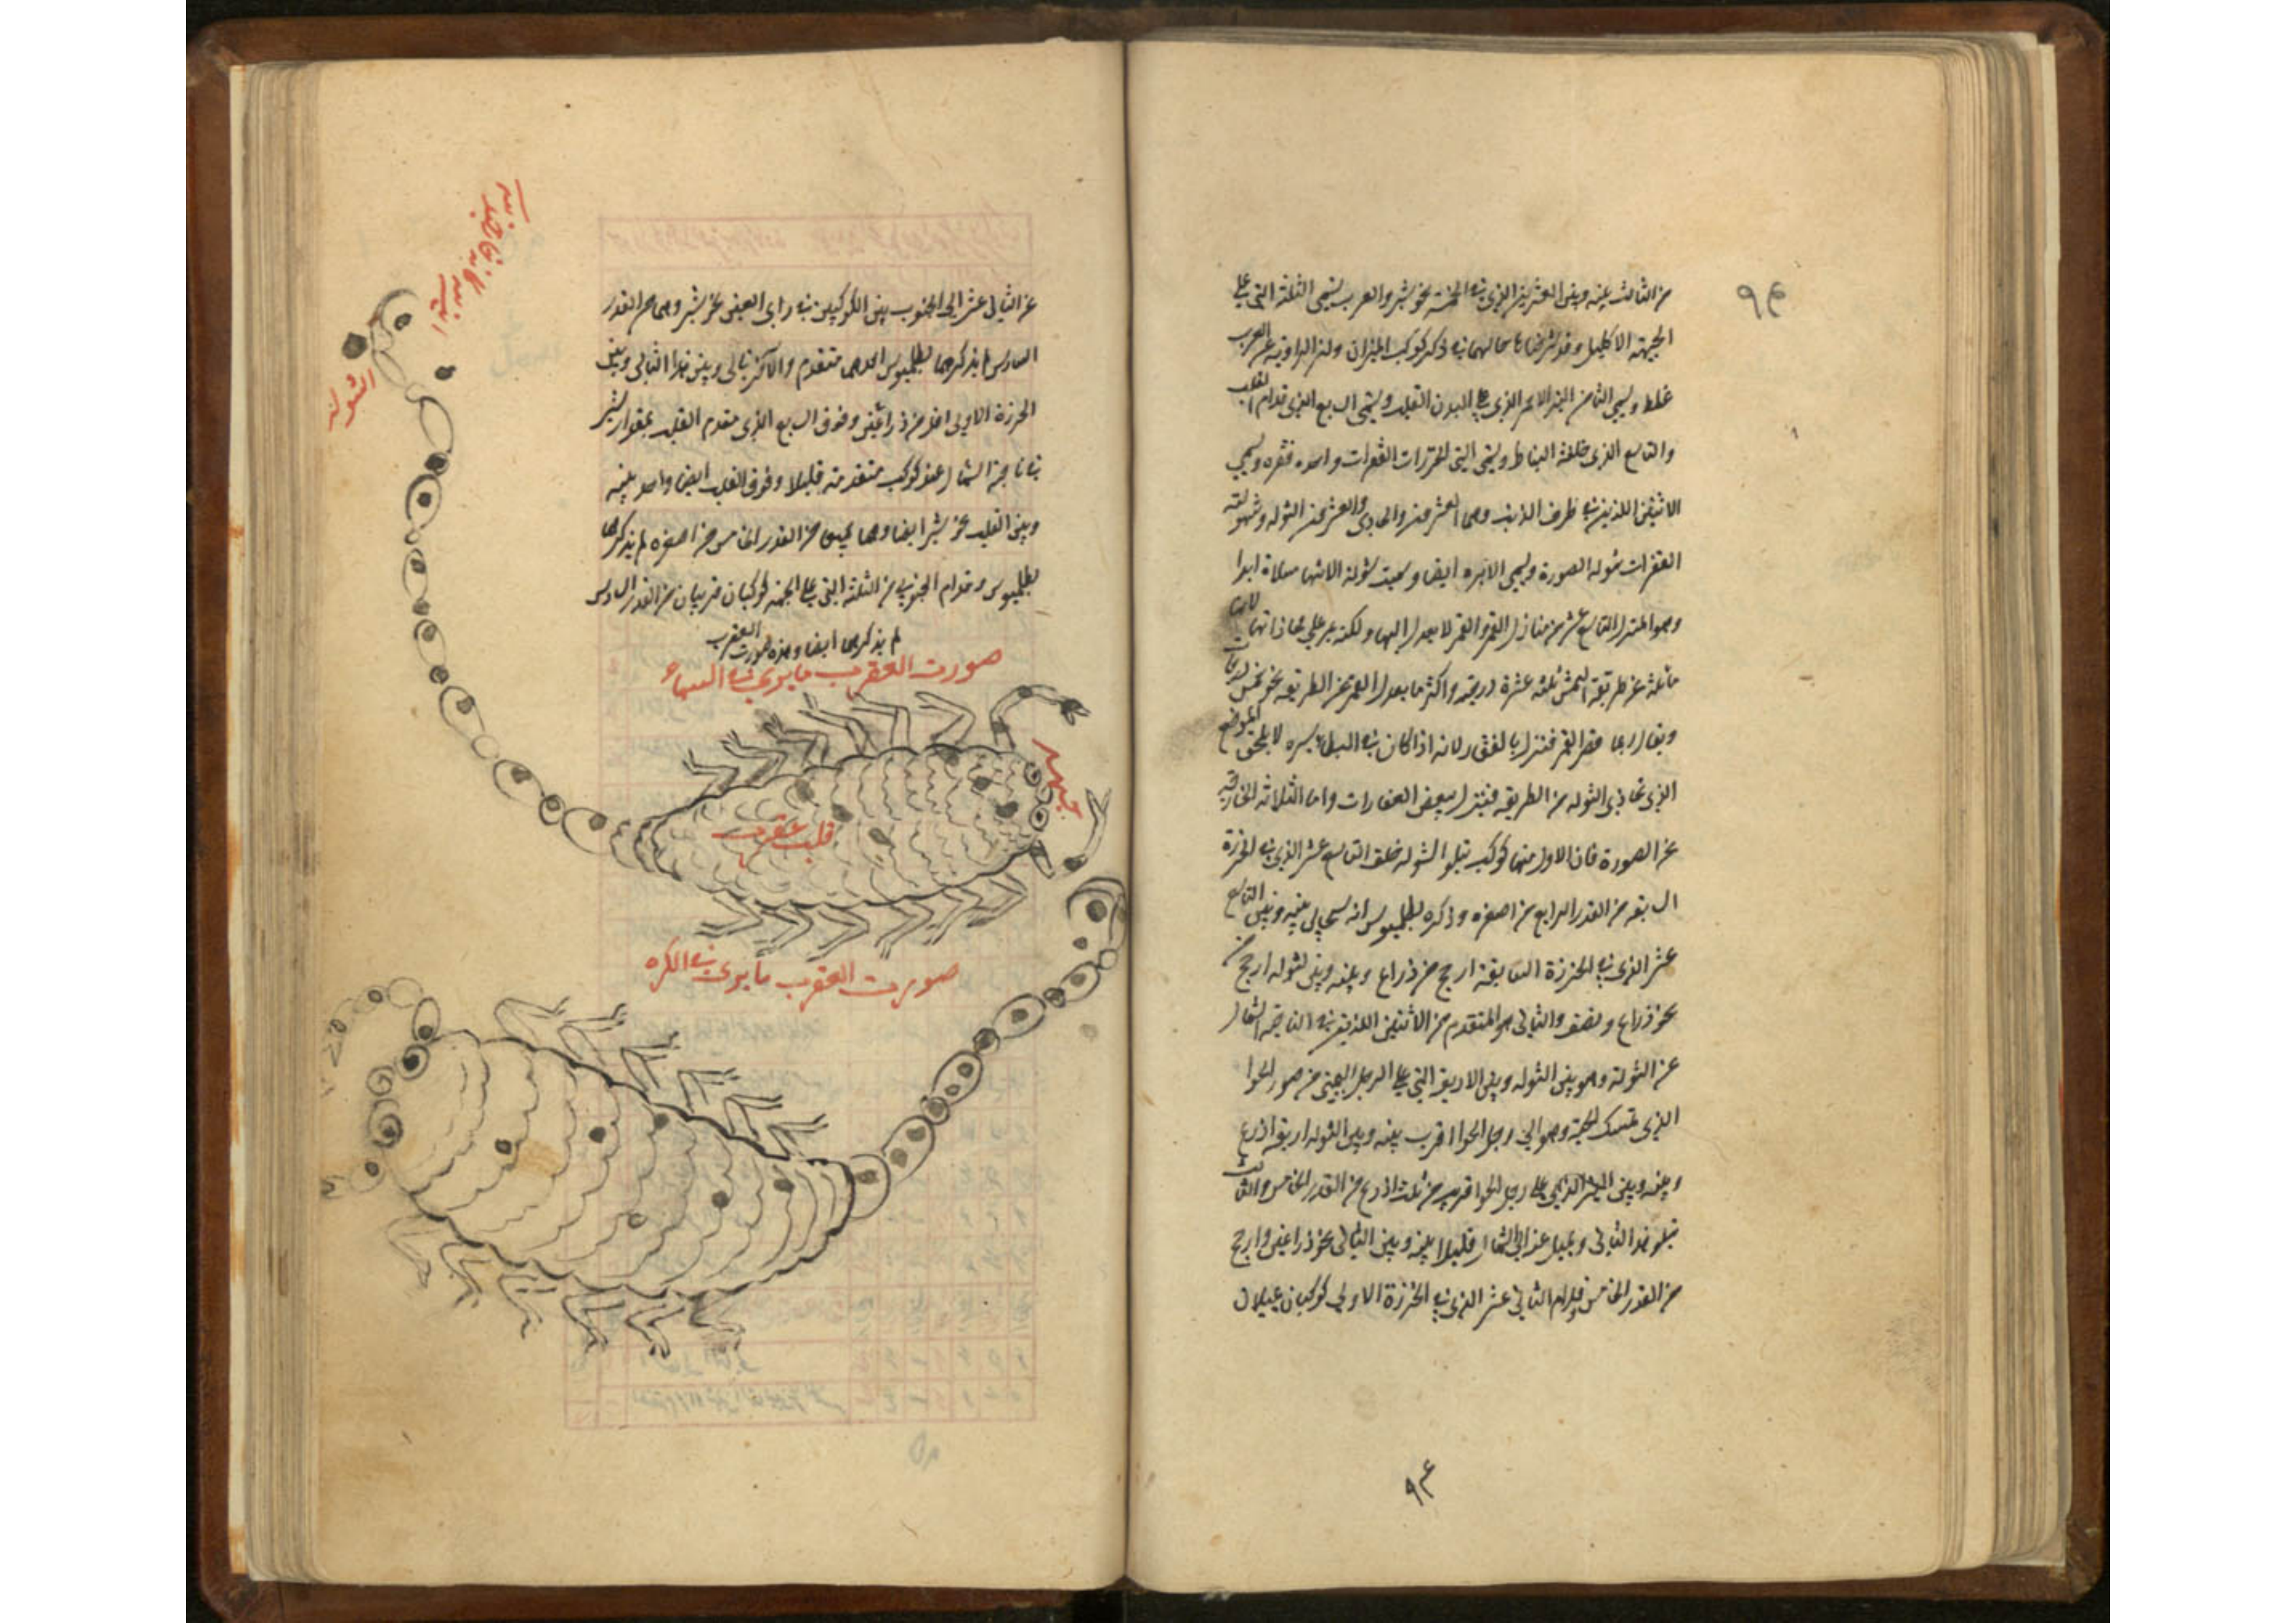 ٩٤
من الثالث بينه وبين العشرين الذي في الخمسة نحو شبر والعرب يسمى الثلثة التى على
الجبهة الاكليل وقد شرحنا حالهما في ذكر كوكب الميزان ولان الرواية عن العرب
غلط ويسمى الثامن النير الاحمر الذي على البدن القلب ويسمى السابع الذي قدام القلب
والتاسع الذي خلفه النياط ويسمى التى الخرزات الفقرات واحده فقره ويسمى
الاثنين اللذين في طرف الذنب وهما العشرون والحادي والعشرون الشوله وشولة
العقرب شولة الصورة ويسمى الابره ايضا وسميت شولة لانها مشالة ابدا
وهو المنزل التاسع عشر من منازل القمر والقمر لا يعدل اليها ولكنه يمر على محاذاتها لانها
مائلة عن طريقة الشمس ثلثه عشرة درجة واكثر ما يعدل القمر عن الطريقه نحو خمس درجات
ويقال ربما قصر القمر فنزل بالفقار لانه اذا كان في البطاء سيره لا يلحق الموضع
الذي تحاذى الشوله من الطريقه فينزل ببعض الفقارات واما الثلاثه الخارجة
عن الصورة فان الاول منها كوكب يتلو الشوله خلف التاسع عشر الذي في الخرزة
السابعه من القدر الرابع من اصغره وذكره بطلميوس انه سحابى بينه وبين التاسع
عشر الذي في الخرزة السابعة ارجح من ذراع وبينه وبين الشوله ارجح من
نحو ذراع ونصف والثانى هو المتقدم من الاثنين اللذين في الناحية الشمال
عن الشولة وهو بين الشوله وبين الاربعة التى على الرجل اليمنى من صور الحوا
الذى تمسك الحية وهو الى رجل الحوا اقرب بينه وبين الشوله اربعة اذرع
وبينه وبين النير الذي على رجل الحوا قريب من ثلث اذرع من القدر الخامس والثالث
يتلو هذا الثانى ويميل عنه الى الشمال قليلا بينه وبين الثانى نحو ذراعين وارجح
من القدر الخامس وقدام الثانى عشر الذي في الخرزة الاولى كوكبان يميلان
٩٤
عن الثانى عشر الى الجنوب بين الكوكبين في راى العين نحو شبر وهما من القدر
السادس لم يذكرهما بطلميوس احدهما متقدم والاخر تالى وبين هذا التالى وبين
الخرزة الاولى اقل من ذراعين وفوق السابع الذي متقدم القلب بمقدار شبر
في ناحية الشمال عنه كوكب متقدمته قليلا وفوق القلب ايضا واحد بينه
وبين القلب نحو شبر ايضا وهما جميعا من القدر الخامس من اصغره لم يذكرهما
بطلميوس وقدام الجنوبى من الثلثه التى على الجبهة كوكبان قريبان من القدر السادس
لم يذكرهما ايضا وهذه صورت العقرب
صورت العقرب ما يرى في السماء
الشولة
جبهة
قلب عقرب
صورت العقرب ما يرى في الكره